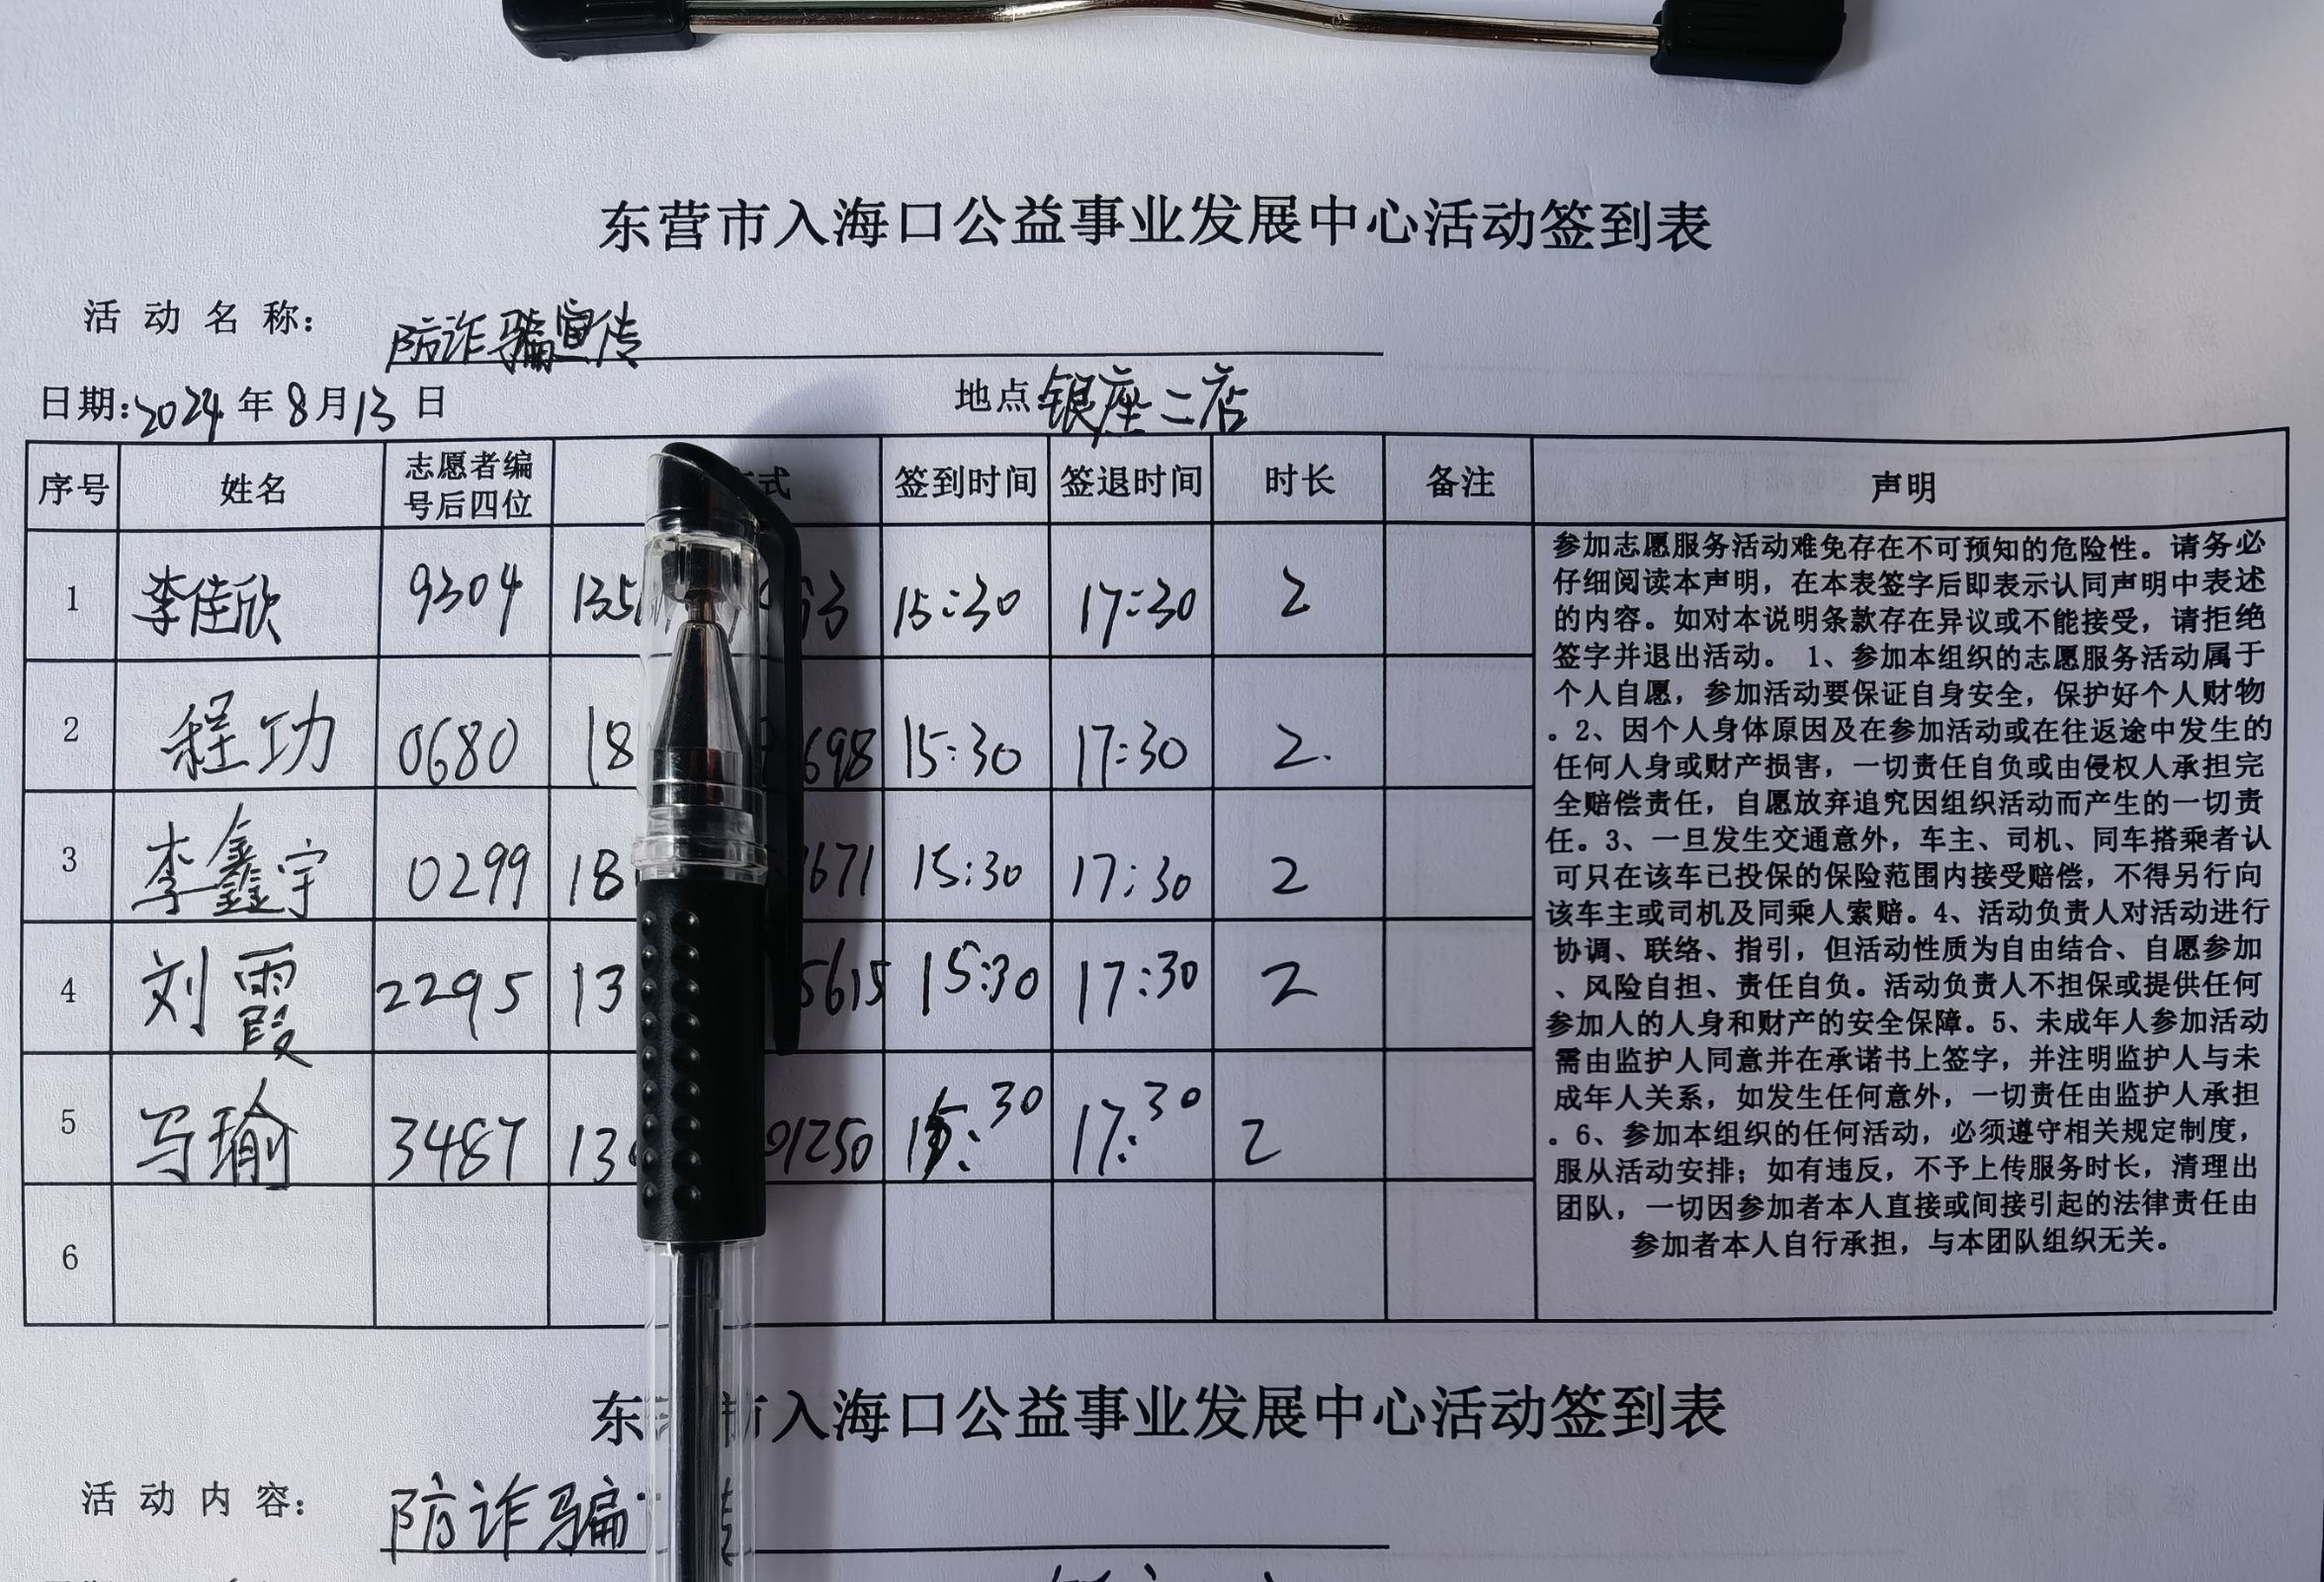 东营市入海口公益事业发展中心活动签到表
活动名称: 防诈骗宣传
日期:2024年8月13日 地点 银座二店
序号 姓名 志愿者编号后四位 式 签到时间 签退时间 时长 备注 声明
1 李佳欣 9304 135 63 15:30 17:30 2
2 程功 0680 18 698 15:30 17:30 2.
3 李鑫宇 0299 18 1671 15:30 17:30 2
4 刘霞 2295 13 5615 15:30 17:30 2
5 马瑜 3487 13 01250 15:30 17:30 2
6
参加志愿服务活动难免存在不可预知的危险性。请务必
仔细阅读本声明，在本表签字后即表示认同声明中表述
的内容。如对本说明条款存在异议或不能接受，请拒绝
签字并退出活动。 1、参加本组织的志愿服务活动属于
个人自愿，参加活动要保证自身安全，保护好个人财物
。2、因个人身体原因及在参加活动或在往返途中发生的
任何人身或财产损害，一切责任自负或由侵权人承担完
全赔偿责任，自愿放弃追究因组织活动而产生的一切责
任。3、一旦发生交通意外，车主、司机、同车搭乘者认
可只在该车已投保的保险范围内接受赔偿，不得另行向
该车主或司机及同乘人索赔。4、活动负责人对活动进行
协调、联络、指引，但活动性质为自由结合、自愿参加
、风险自担、责任自负。活动负责人不担保或提供任何
参加人的人身和财产的安全保障。5、未成年人参加活动
需由监护人同意并在承诺书上签字，并注明监护人与未
成年人关系，如发生任何意外，一切责任由监护人承担
。6、参加本组织的任何活动，必须遵守相关规定制度，
服从活动安排；如有违反，不予上传服务时长，清理出
团队，一切因参加者本人直接或间接引起的法律责任由
参加者本人自行承担，与本团队组织无关。
东 市入海口公益事业发展中心活动签到表
活动内容: 防诈骗